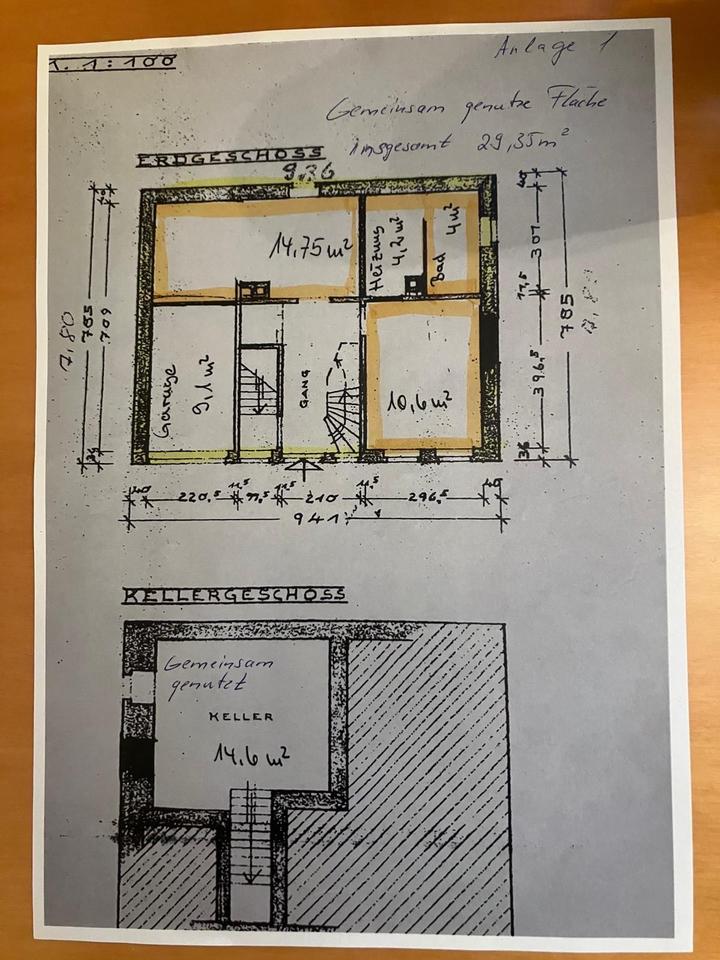 Anlage 1
1:100
Gemeinsam genutze Fläche
insgesamt 29,35 m²
ERDGESCHOSS
9.36
14,75 m²
Heizung
4,2 m²
Bad
4 m²
40
301
17,5
785
396,5
36
7,80
785
709
Garage
9,1 m²
GANG
10,6 m²
11,5 11,5 11,5
220,5 210 296,5
941
KELLERGESCHOSS
Gemeinsam
genutzt
KELLER
14,6 m²